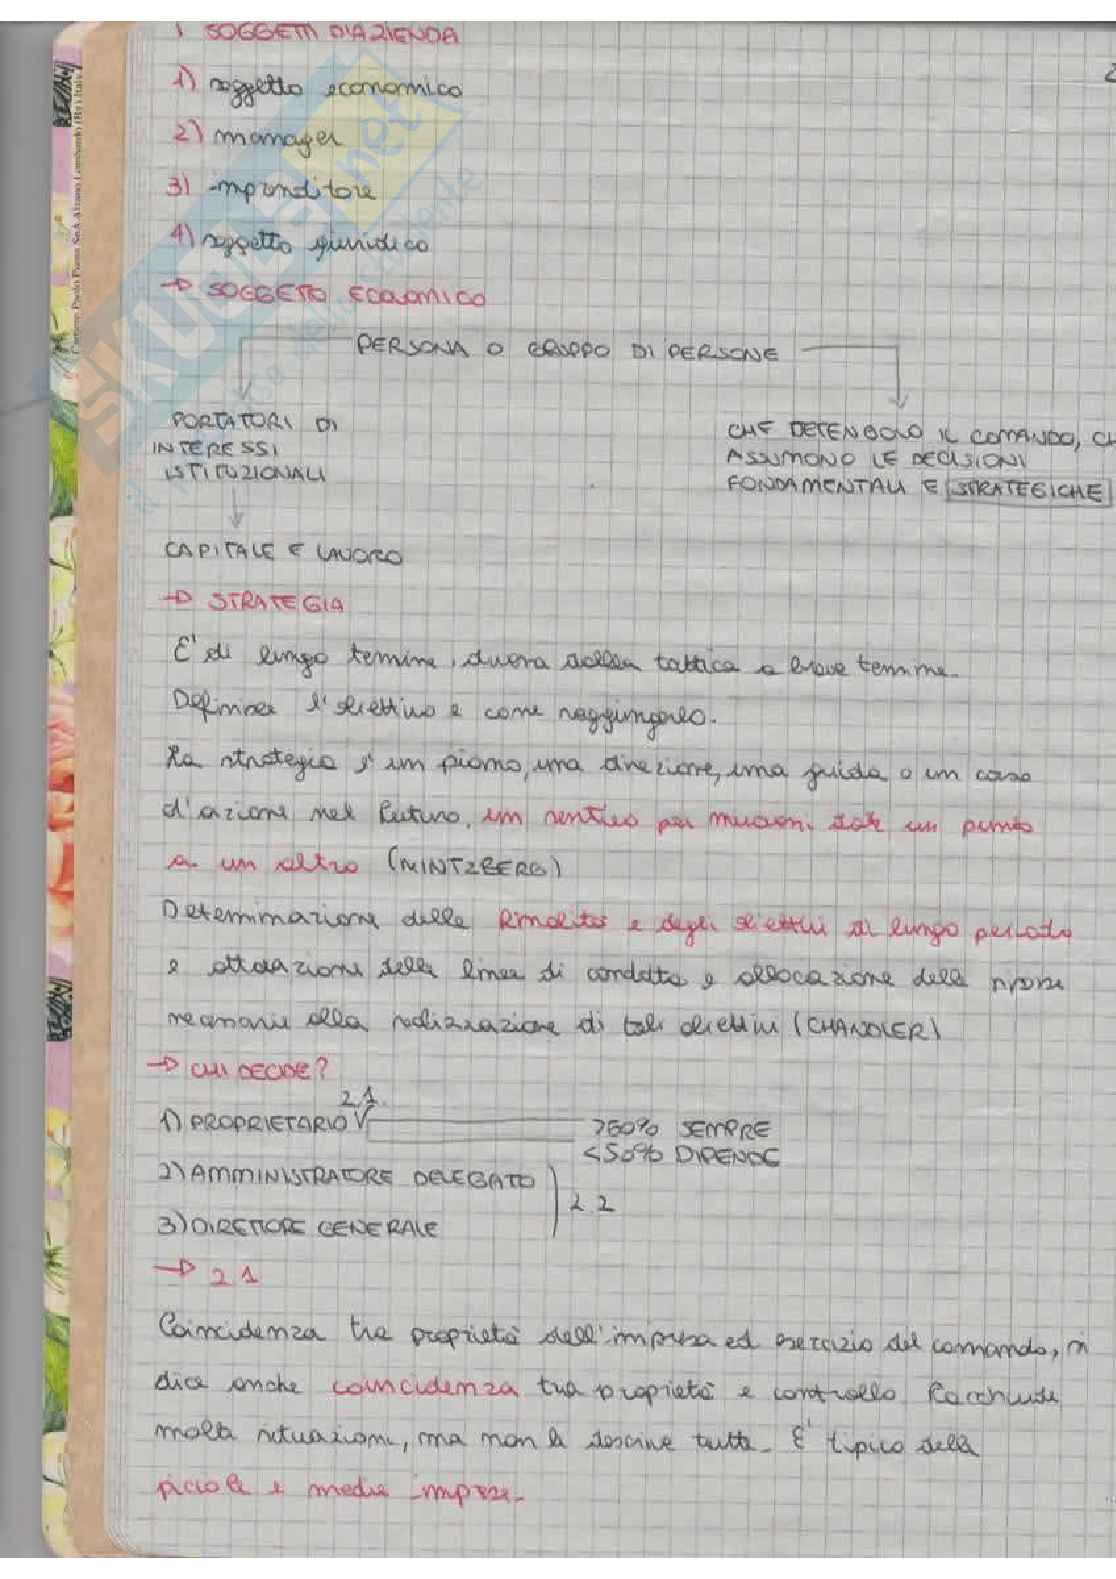 I SOGGETTI D'AZIENDA
2
1) soggetto economico
2) manager
3) imprenditore
4) soggetto giuridico
→ SOGGETTO ECONOMICO
PERSONA O GRUPPO DI PERSONE
PORTATORI DI
INTERESSI
ISTITUZIONALI
CHE DETENGOLO IL COMANDO, CH
ASSUMONO LE DECISIONI
FONDAMENTALI E STRATEGICHE
CAPITALE E LAVORO
→ STRATEGIA
E' di lungo termine, diversa dalla tattica a breve termine.
Definisce l'obiettivo e come raggiungerlo.
La strategia è un piano, una direzione, una guida o un corso
d'azione nel futuro, un sentiero per muoversi da un punto
a un altro (MINTZBERG)
Determinazione delle finalità e degli obiettivi di lungo periodo
e attuazione della linea di condotta e allocazione delle risorse
necessarie alla realizzazione di tali obiettivi (CHANDLER)
→ CHI DECIDE?
2.1
1) PROPRIETARIO
>50% SEMPRE
<50% DIPENDE
2) AMMINISTRATORE DELEGATO
2.2
3) DIRETTORE GENERALE
→ 2.1
Coincidenza tra proprietà dell'impresa ed esercizio del comando, si
dice anche coincidenza tra proprietà e controllo. Racchiude
molte situazioni, ma non le descrive tutte. E' tipico delle
piccole e medie imprese.
SKUOLA.net